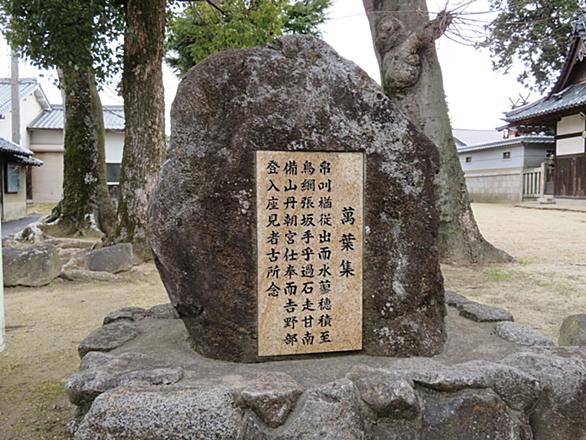 萬葉集
帛叫楢従出而水蓼穂積至
鳥網張坂手乎過石走甘南
備山丹朝宮仕奉而吉野部
登入座見者古所念